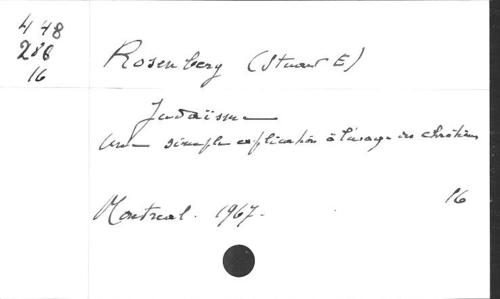 448
286
16
Rosenberg (Stuart E)
Judaïsme
Une simple explication à l'usage des chrétiens
Montreal. 1967.
16